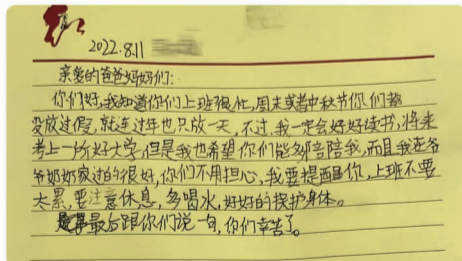 2022.8.11
亲爱的爸爸妈妈们:
你们好,我知道你们上班很忙,周末或者中秋节你们都
没放过假,就连过年也只放一天,不过,我一定会好好读书,将来
考上一所好大学,但是我也希望你们能多陪陪我,而且我在爷
爷奶奶家过的很好,你们不用担心,我要提醒你,上班不要
太累,要注意休息,多喝水,好好的保护身体。
最后跟你们说一句,你们幸苦了。